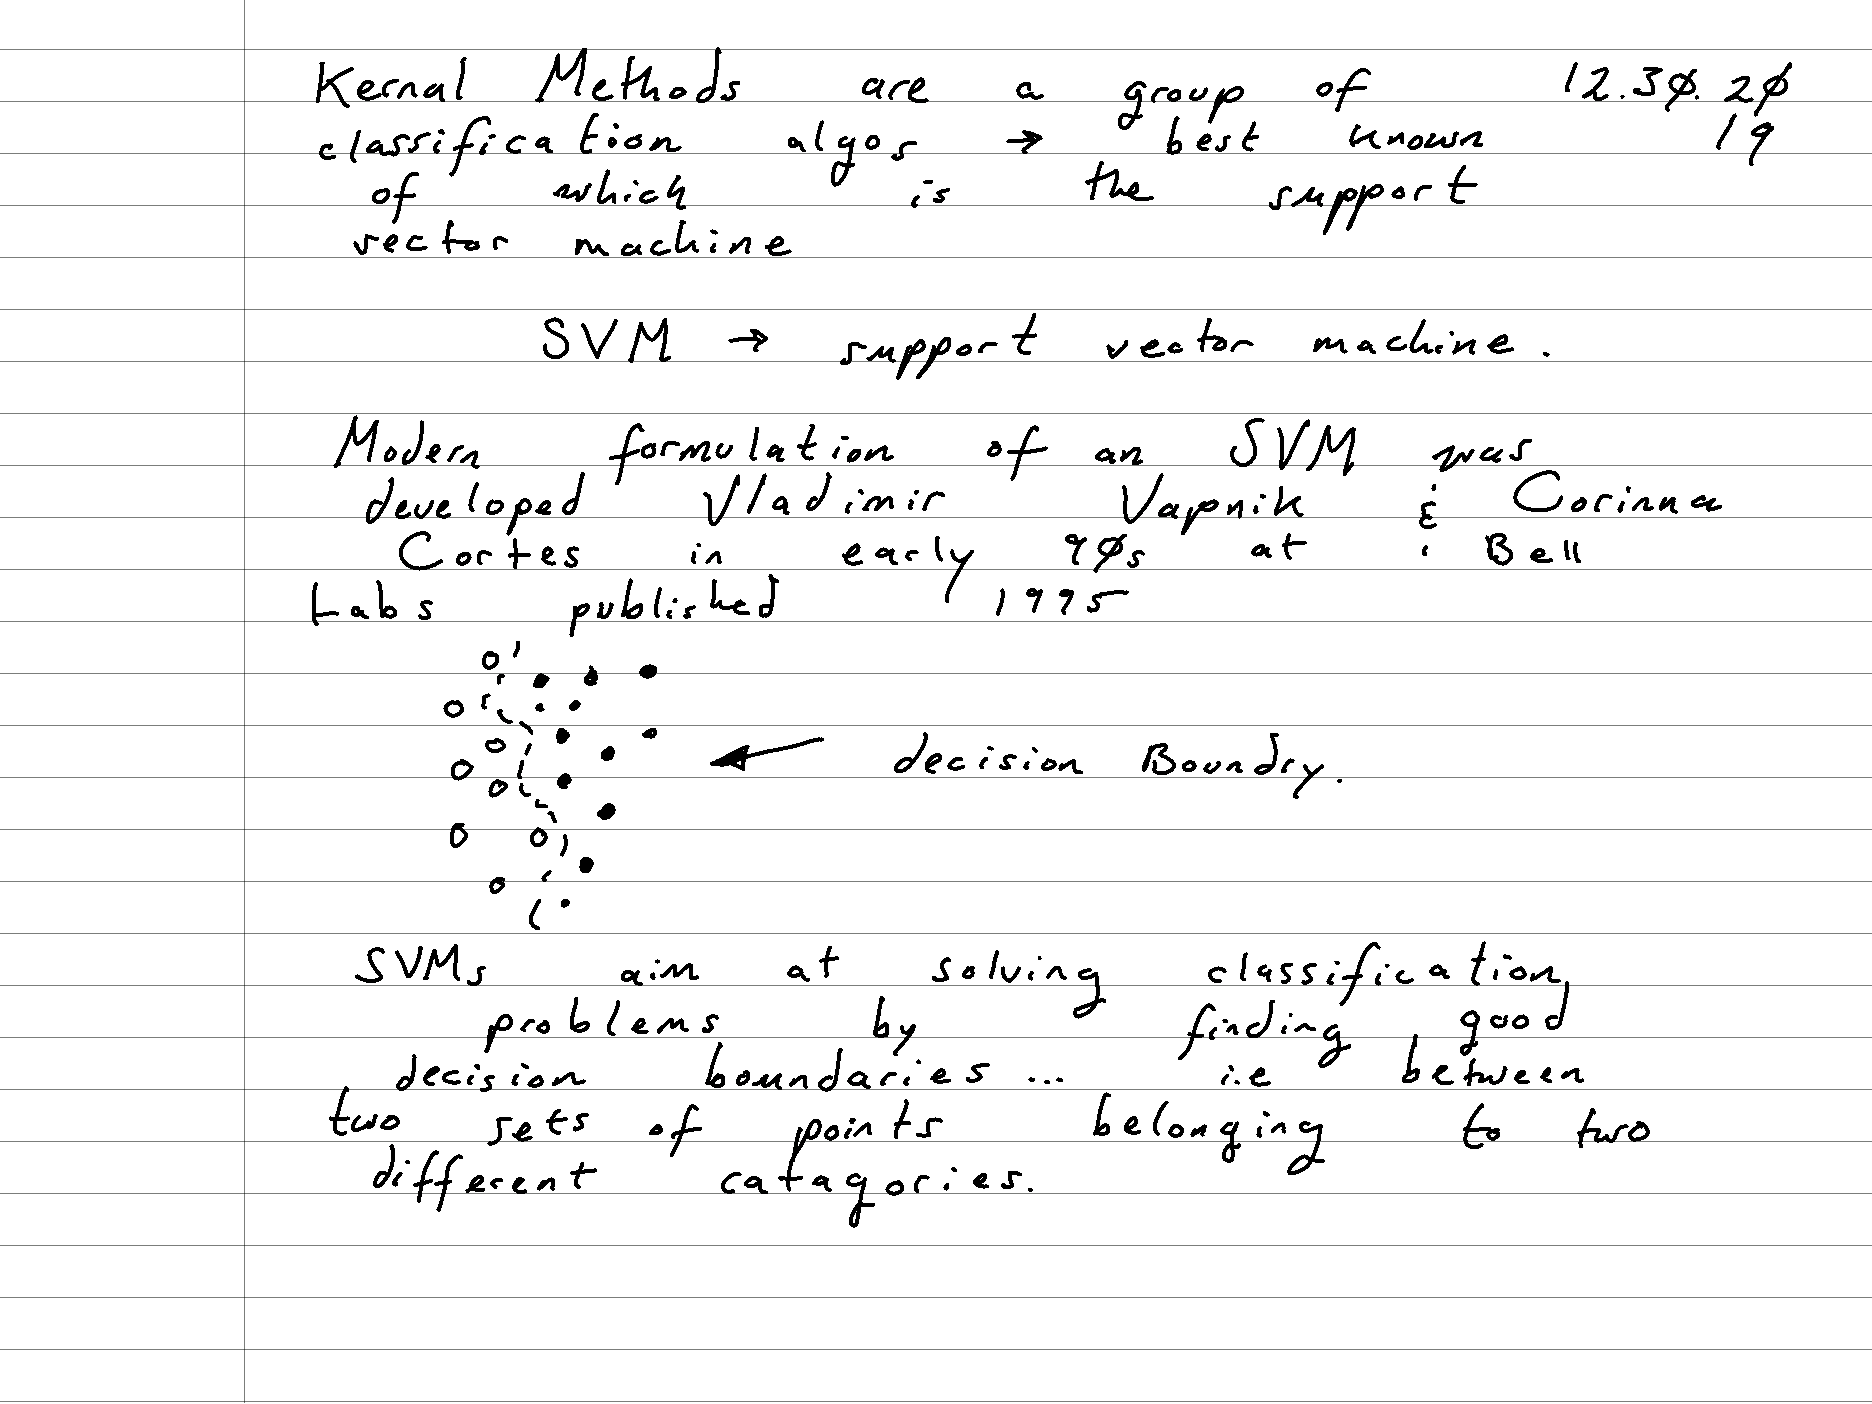 Kernal Methods are a group of 12.30.20
classification algos → best known 19
of which is the support
vector machine
SVM → support vector machine.
Modern formulation of an SVM was
developed Vladimir Vapnik & Corinna
Cortes in early 90s at Bell
Labs published 1995
decision Boundry.
SVMs aim at solving classification
problems by finding good
decision boundaries... i.e between
two sets of points belonging to two
different catagories.